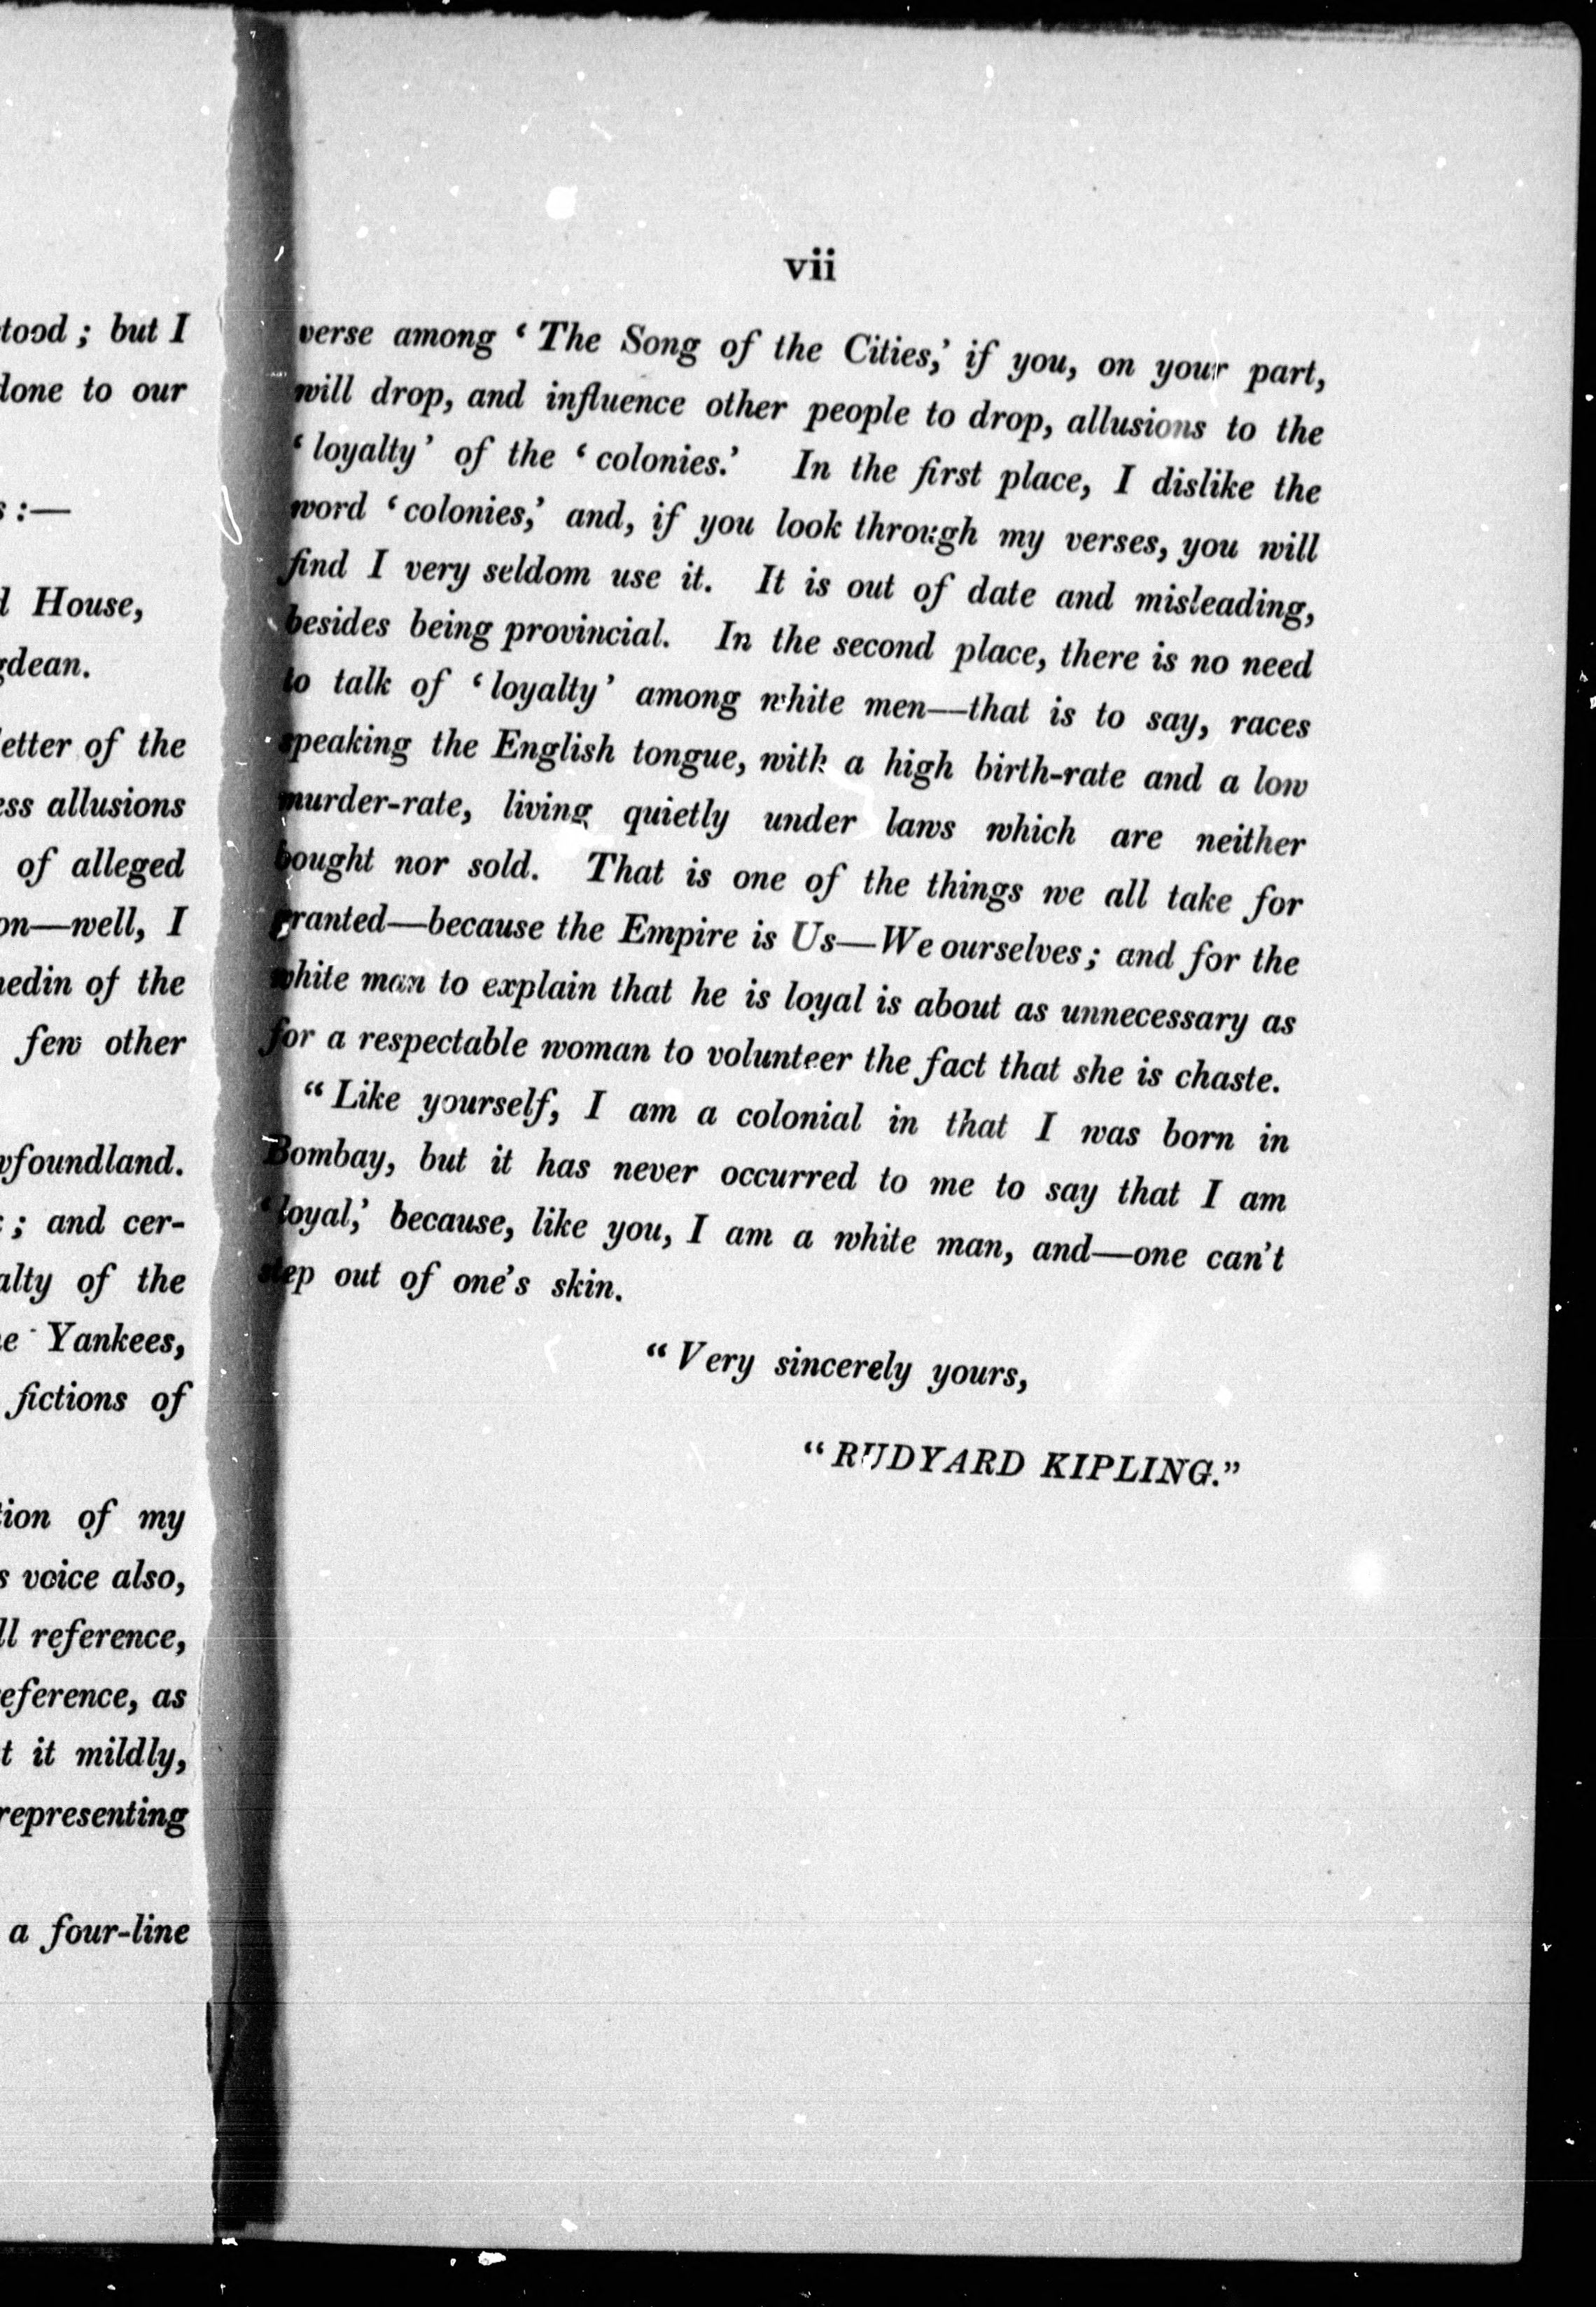 tood ; but I
done to our
s :—
d House,
gdean.
letter of the
ess allusions
of alleged
on—well, I
nedin of the
few other
wfoundland.
; and cer-
alty of the
he Yankees,
fictions of
tion of my
s voice also,
ll reference,
reference, as
t it mildly,
representing
a four-line
vii
verse among ‘ The Song of the Cities,’ if you, on your part,
will drop, and influence other people to drop, allusions to the
‘ loyalty ’ of the ‘ colonies.’ In the first place, I dislike the
word ‘ colonies,’ and, if you look through my verses, you will
find I very seldom use it. It is out of date and misleading,
besides being provincial. In the second place, there is no need
to talk of ‘ loyalty ’ among white men—that is to say, races
speaking the English tongue, with a high birth-rate and a low
murder-rate, living quietly under laws which are neither
bought nor sold. That is one of the things we all take for
granted—because the Empire is Us—We ourselves ; and for the
white man to explain that he is loyal is about as unnecessary as
for a respectable woman to volunteer the fact that she is chaste.
“ Like yourself, I am a colonial in that I was born in
Bombay, but it has never occurred to me to say that I am
‘ loyal,’ because, like you, I am a white man, and—one can’t
step out of one’s skin.
“ Very sincerely yours,
“ RUDYARD KIPLING.”